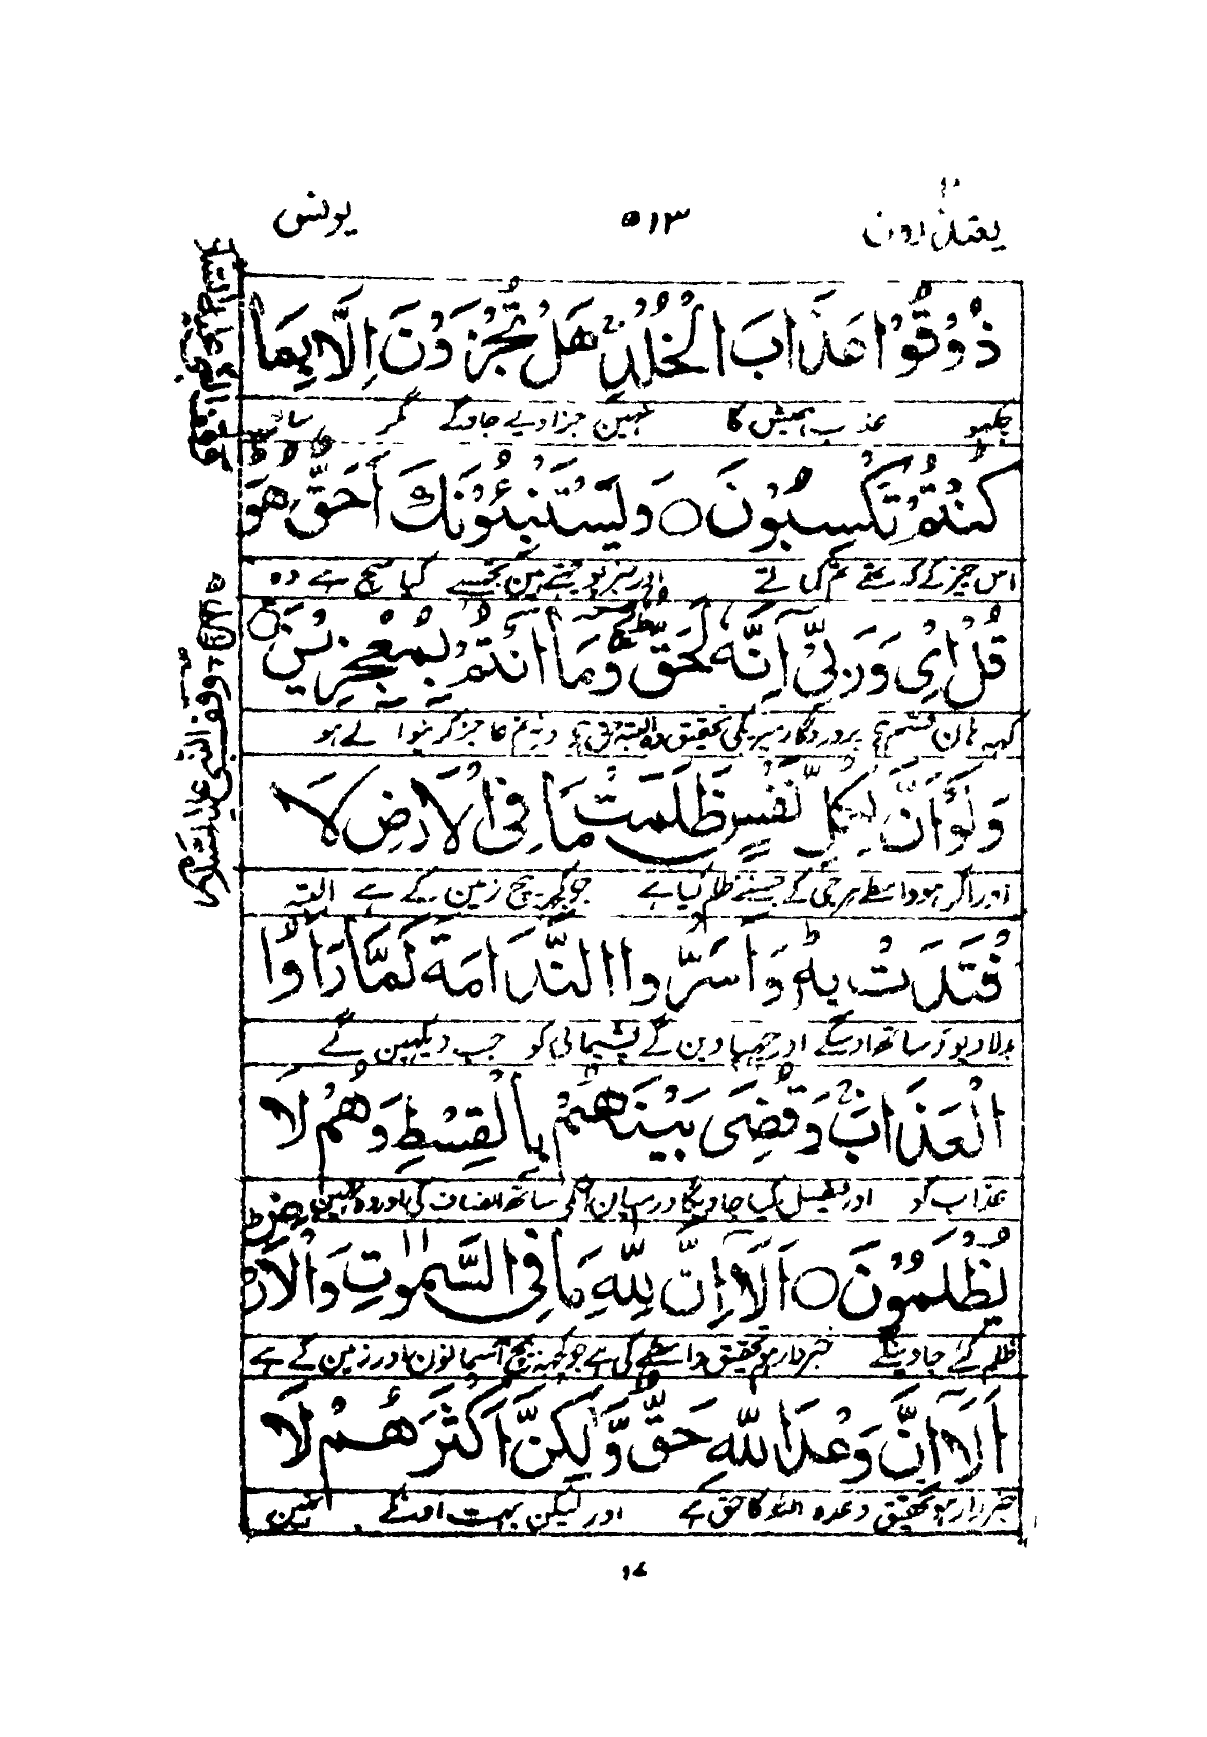 یعتذرون ۵۱۳ یونس
ذُوْقُوْا عَذَابَ الْخُلْدِ هَلْ تُجْزَوْنَ اِلَّا بِمَا
چکہو عذاب ہمیش کا نہین جزا دیے جاوگے مگر ساتہ
كُنْتُمْ تَكْسِبُوْنَ ○ وَلَيَسْتَنْۢبِئُوْنَكَ اَحَقٌّ هُوَ
اس چیز کے کہ تہے تم کماتے اور خبر پوچہتے ہین تجہسے کیا سچ ہے وہ
قُلْ اِیْ وَرَبِّیْٓ اِنَّهٗ لَحَقٌّ وَمَآ اَنْتُمْ بِمُعْجِزِیْنَ ○
کہہ ہان قسم ہے پروردگار میرے کی تحقیق وہ البتہ حق ہے نہین تم عاجز کرنیوالے ہو
وَلَوْ اَنَّ لِكُلِّ نَفْسٍ ظَلَمَتْ مَا فِی الْاَرْضِ لَا
اور اگر ہو واسطے ہر جی کے جسنے ظلم کیا ہے جو کچہ بیچ زمین کے ہے البتہ
فْتَدَتْ بِهٖ وَاَسَرُّوا النَّدَامَةَ لَمَّا رَاَوُا
بدلا دیوے ساتہ اوسکے اور چہپا وین گے پشیمانی کو جب دیکہین گے
الْعَذَابَ وَقُضِیَ بَیْنَهُمْ بِالْقِسْطِ وَهُمْ لَا
عذاب کو اور فیصل کیا جاویگا درمیان انکی ساتہ انصاف کی اور وہ نہین
یُظْلَمُوْنَ ○ اَلَآ اِنَّ لِلّٰهِ مَا فِی السَّمٰوٰتِ وَالْاَرْضِ
ظلم کئے جاوینگے خبردار ہو تحقیق واسطے کی ہے جو کچہ بیچ آسمانون اور زمین کے ہے
اَلَآ اِنَّ وَعْدَ اللّٰهِ حَقٌّ وَّلٰكِنَّ اَكْثَرَهُمْ لَا
خبردار ہو تحقیق وعدہ اللہ کا حق ہے اور لیکن بہت اونکے نہین
وقف النبی علیہ السلام